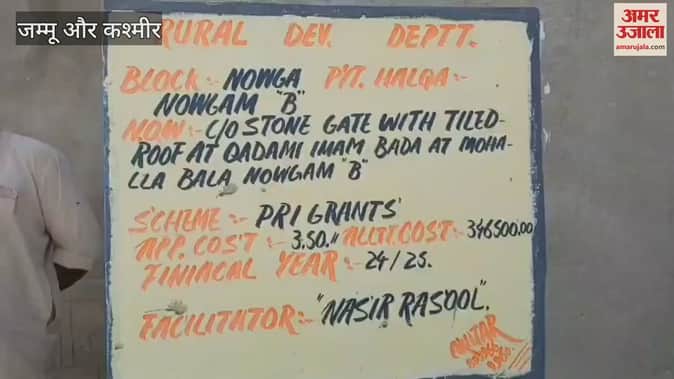 जम्मू और कश्मीर
अमर
उजाला
amarujala.com
RURAL DEV. DEPTT.
BLOCK:- NOWGA PYT. HALQA:-
NOWGAM "B"
NOW:- C/O STONE GATE WITH TILED-
ROOF AT QADAMI IMAM BADA AT MOHA-
LLA BALA NOWGAM "B"
SCHEME:- PRI GRANTS'
APP. COST:- 3.50.11 ALLTT. COST:- 346500.00
FINIACAL YEAR:- 24/25.
FACILITATOR:- "NASIR RASOOL".